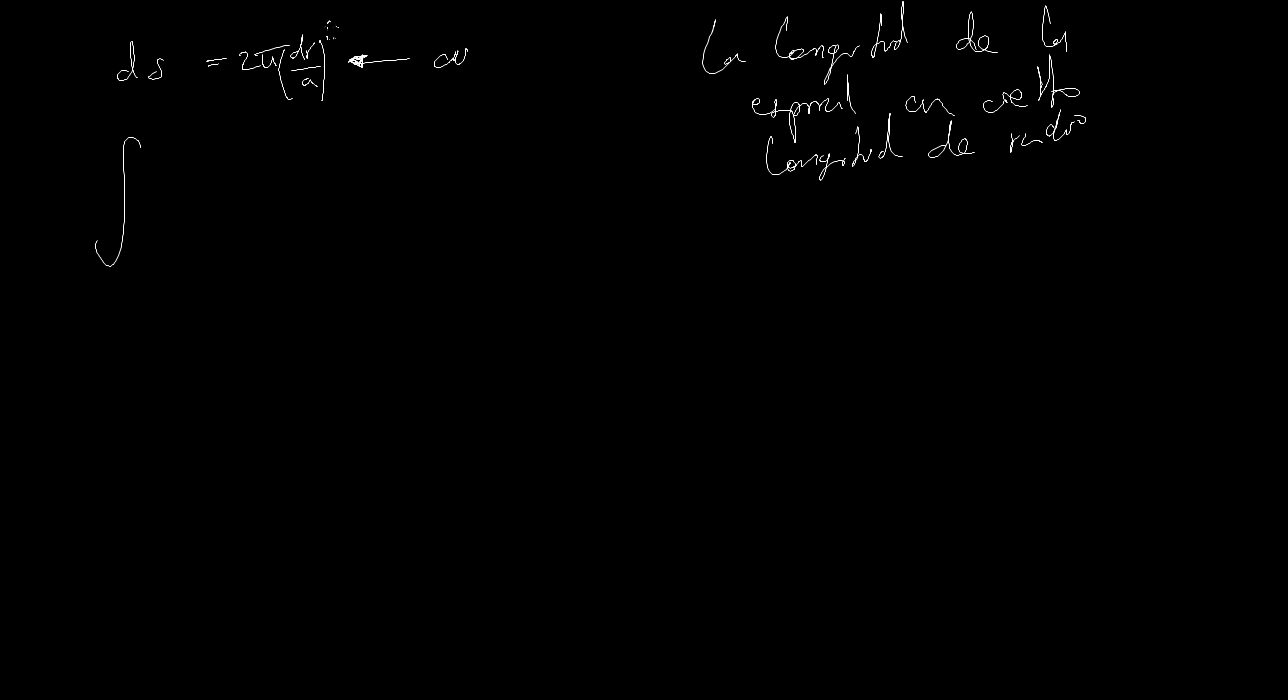 ds = 2π(dr/a) ←
La Longitud de la
espiral en cierto
Longitud de radio
∫